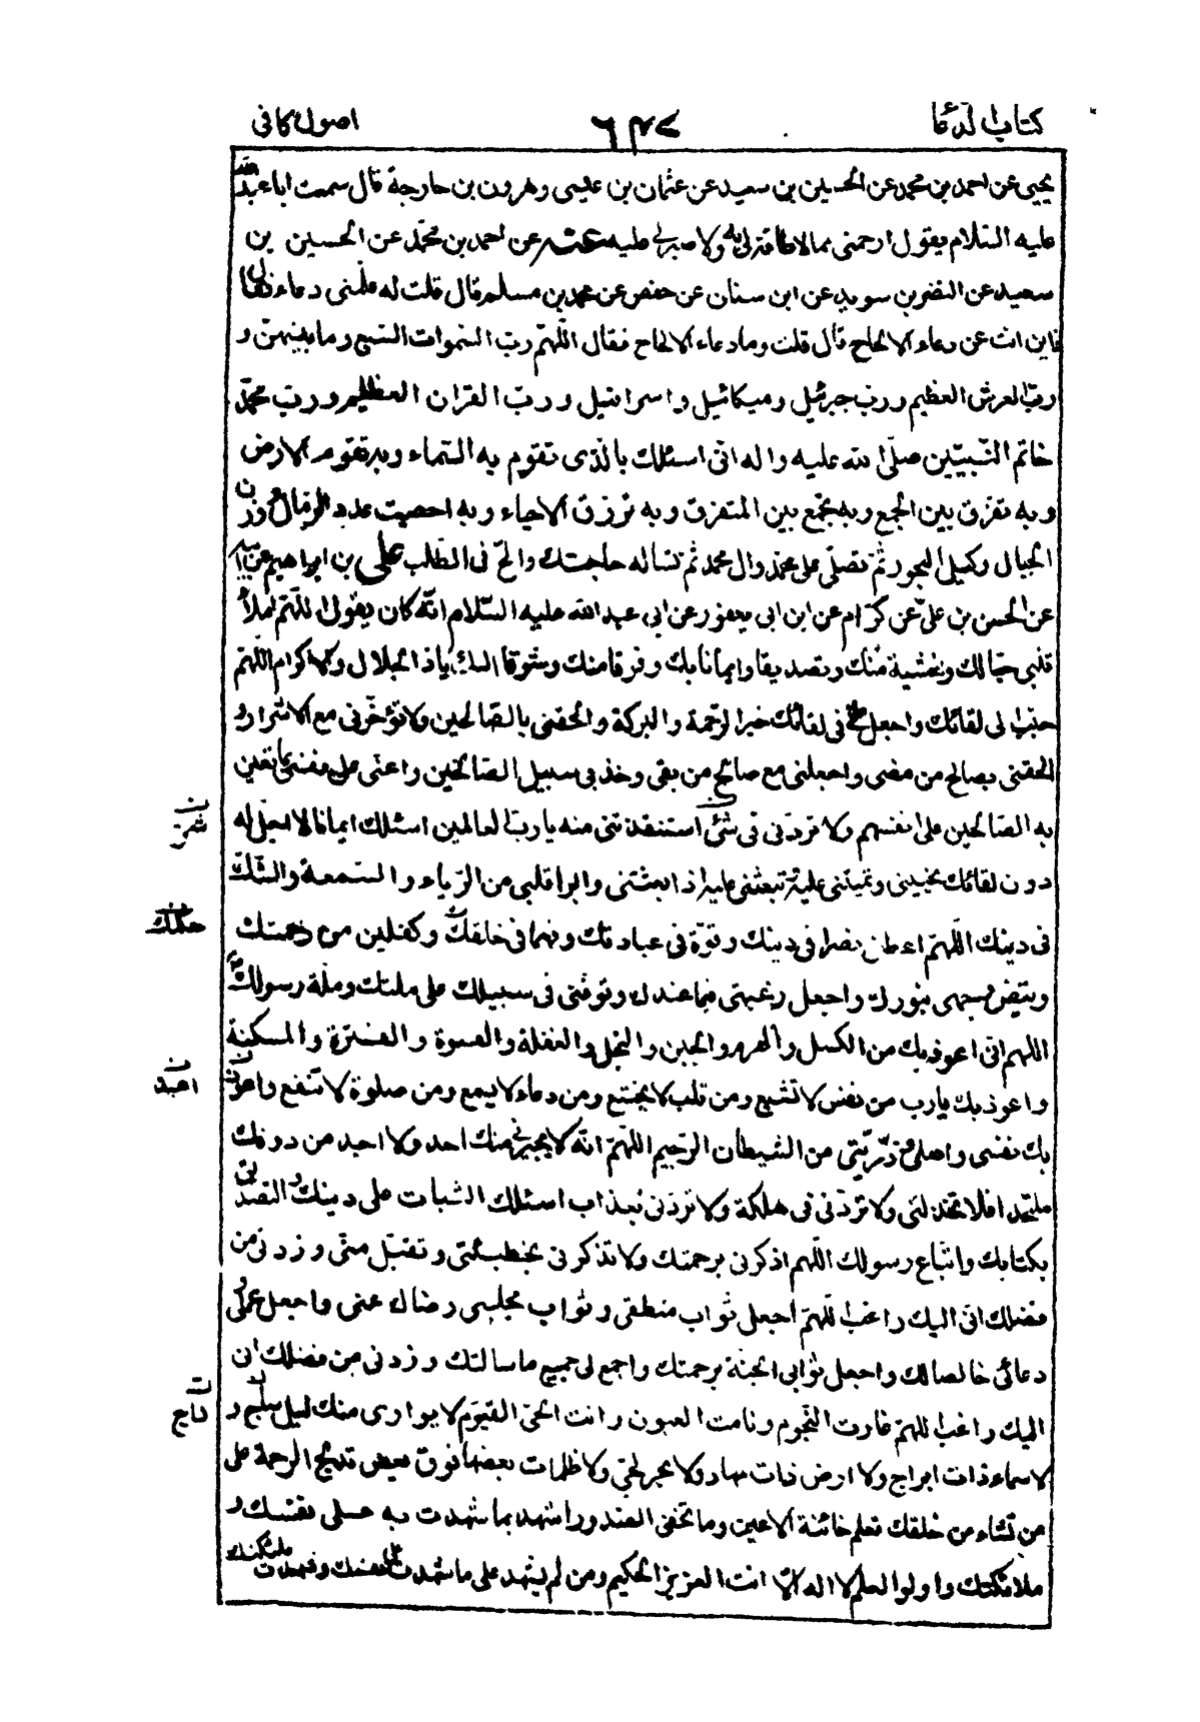 كتاب الدعا ٦٤٧ اصول كافى
يحيى عن احمد بن محمد عن الحسين بن سعيد عن عثمان بن عليسى وهرون بن خارجة قال سمعت ابا عبد الله
عليه السلام يقول ارحمنى بمالا طاقة لى به ولا صبر لى عليه عنه عن احمد بن محمد عن الحسين بن
سعيد عن النضر بن سويد عن ابن سنان عن حفص عن محمد بن مسلم قال قلت له علمنى دعاء فقال
فاين انت عن دعاء الالحاح قال قلت وما دعاء الالحاح فقال اللهم رب السموات السبع وما بينهن و
رب العرش العظيم ورب جبرئيل وميكائيل واسرافيل ورب القران العظيم ورب محمد
خاتم النبيين صلى الله عليه واله انى اسئلك بالذى تقوم به السماء وبه تقوم الارض
وبه تفرق بين الجمع وبه تجمع بين المتفرق وبه ترزق الاحياء وبه احصيت عدد الرمال ووزن
الجبال وكيل البحور ثم تصلى على محمد وال محمد ثم تساله حاجتك والح فى الطلب على بن ابراهيم عن ابيه
عن الحسن بن على عن كرام عن ابن ابى يعفور عن ابى عبد الله عليه السلام انه كان يقول اللهم املأ
قلبى حبا لك وخشية منك وتصديقا وايمانا بك وفرقا منك وشوقا اليك يا ذا الجلال والاكرام اللهم
حبب الى لقائك واجعل لى فى لقائك خير الرحمة والبركة والحقنى بالصالحين ولا تؤخرنى مع الاشرار و
الحقنى بصالح من مضى واجعلنى مع صالح من بقى وخذ بى سبيل الصالحين واعنى على نفسى بما تعين
به الصالحين على انفسهم ولا تردنى فى شئ استنقذتنى منه يا رب العالمين اسئلك ايمانا لا اجل له
دون لقائك تحيينى وتميتنى عليه وتبعثنى عليه اذا بعثتنى وابرا قلبى من الرياء والسمعة والشك
فى دينك اللهم اعطنى نصرا فى دينك وقوة فى عبادتك وفهما فى خلقك وكفلين من رحمتك
حكمك
وبيض وجهى بنورك واجعل رغبتى فيما عندك وتوفنى فى سبيلك على ملتك وملة رسولك
اللهم انى اعوذ بك من الكسل والهرم والجبن والبخل والغفلة والقسوة والفترة والمسكنة
واعوذ بك يا رب من نفس لا تشبع ومن قلب لا يخشع ومن دعاء لا يسمع ومن صلوة لا تنفع واعوذ
بك نفسى واهلى وذريتى من الشيطان الرجيم اللهم انه لا يجيرنى منك احد ولا اجد من دونك
ملتحدا فلا تخذلنى ولا تردنى فى هلكة ولا تردنى بعذاب اسئلك الثبات على دينك والتصديق
بكتابك واتباع رسولك اللهم اذكرنى برحمتك ولا تذكرنى بخطيئتى وتقبل منى وزدنى من
فضلك انى اليك راغب اللهم اجعل ثواب منطقى وثواب مجلسى رضاك عنى واجعل عملى و
دعائى خالصا لك واجعل ثوابى الجنة برحمتك واجمع لى جميع ما سالتك وزدنى من فضلك انى
اليك راغب اللهم غارت النجوم ونامت العيون وانت الحى القيوم لا يوارى منك ليل ساج و
لا سماء ذات ابراج ولا ارض ذات مهاد ولا بحر لجى ولا ظلمات بعضها فوق بعض تدلج الرحمة على
من تشاء من خلقك تعلم خائنة الاعين وما تخفى الصدور اشهد بما شهدت به على نفسك و
ملائكتك واولوا العلم لا اله الا انت العزيز الحكيم ومن لم يشهد على ما شهدت على نفسك وشهدت ملئكتك